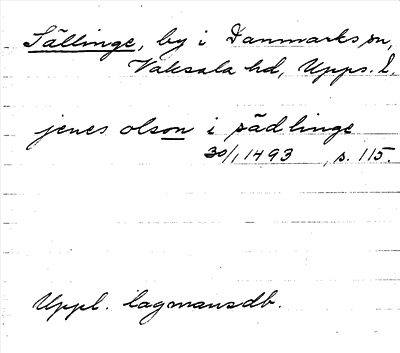 Sällinge, by i Danmarks sn,
Vaksala hd, Upps. l.
jenes olson i sädlinge
30/1 1493, s. 115.
Uppl. lagmansdb.